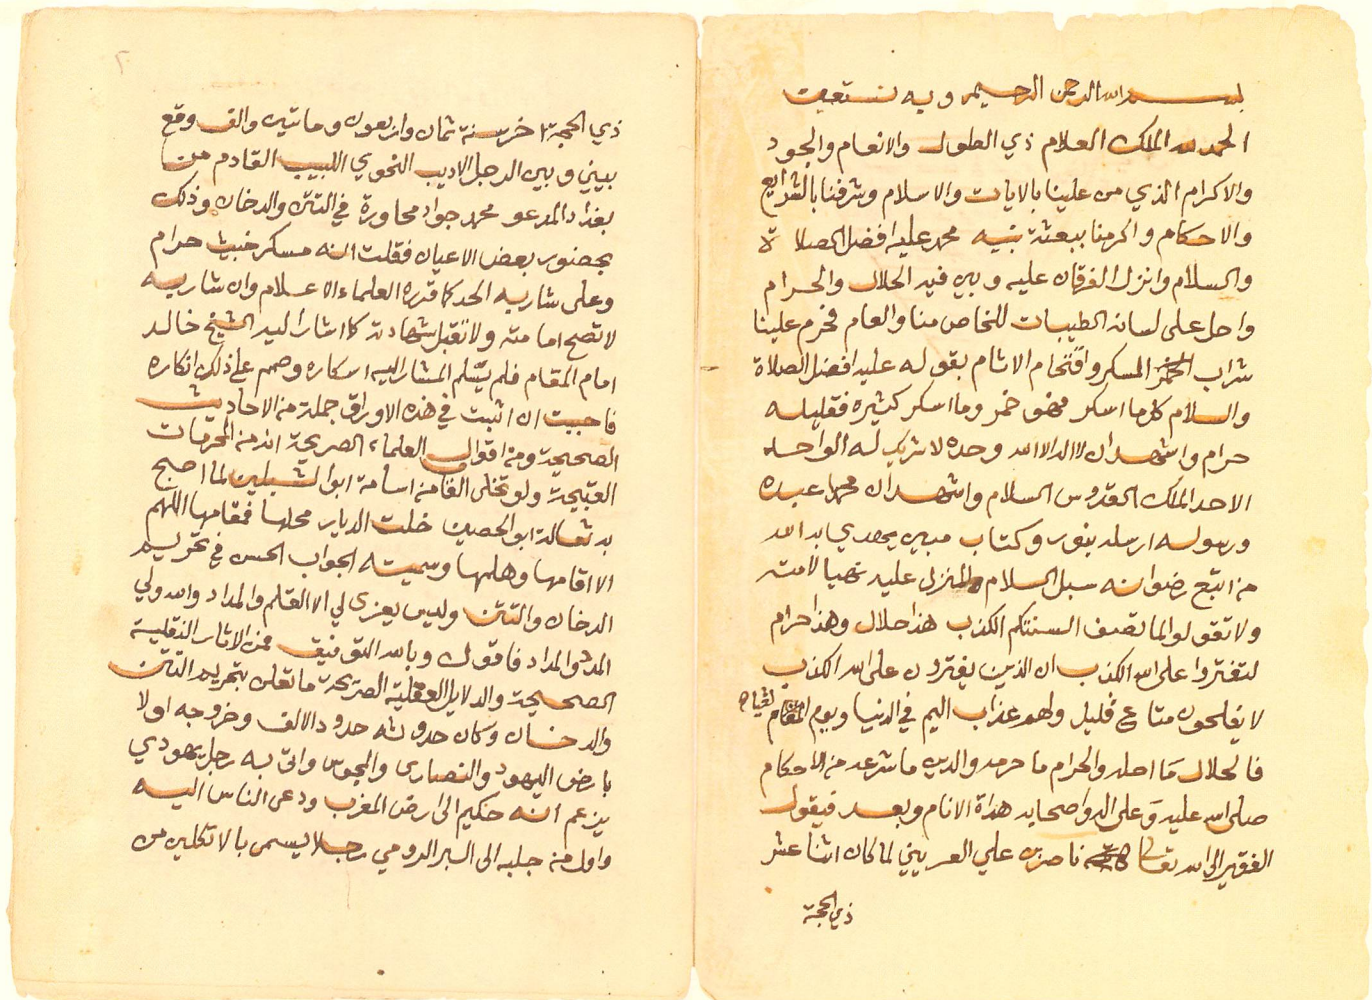 بسم الله الرحمن الرحيم وبه نستعين
الحمد لله الملك العلام ذي الطول والانعام والجود
والاكرام الذي من علينا بالايات والاسلام وشرفنا بالشرايع
والاحكام واكرمنا ببعثة نبيه محمد عليه افضل الصلاة
والسلام وانزل الفرقان عليه وبين فيه الحلال والحرام
واحل على لسانه الطيبات للخاص منا والعام فحرم علينا
شراب الخمر المسكر واقتحام الاثام بقوله عليه افضل الصلاة
والسلام كلما اسكر فهو خمر وما اسكر كثيره فقليله
حرام واشهد ان لا اله الا الله وحده لا شريك له الواحد
الاحد الملك القدوس السلام واشهد ان محمدا عبده
ورسوله ارسله بنور وكتاب مبين يهدي به الله
من اتبع رضوانه سبل السلام والمنزل عليه نهيا لامته
ولا تقولوا لما تصف السنتكم الكذب هذا حلال وهذا حرام
لتفتروا على الله الكذب ان الذين يفترون على الله الكذب
لا يفلحون متاع قليل ولهم عذاب اليم في الدنيا ويوم القيام
فالحلال ما احله والحرام ما حرمه والدين ما شرعه من الاحكام
صلى الله عليه وعلى اله واصحابه هداة الانام وبعد فيقول
الفقير الى الله تعالى ناصر بن علي العريني لما كان اثنا عشر
ذي الحجة
٢
ذي الحجة اخر سنة ثمان واربعون ومائتين والف وقع
بيني وبين الرجل الاديب النحوي اللبيب القادم من
بغداد المدعو محمد جواد محاورة في التتن والدخان وذلك
بحضور بعض الاعيان فقلت انه مسكر خبيث حرام
وعلى شاربه الحد كما قدره العلماء الاعلام وان شاربه
لا تصح امامته ولا تقبل شهادته كما اشار اليه الشيخ خالد
امام المقام فلم يسلم المشار اليه اسكاره وصمم على ذلك انكاره
فاحببت ان اثبت في هذه الاوراق جملة من الاحاديث
الصحيحة ومن اقوال العلماء الصريحة انه من المحرمات
القبيحة ولو تخلى الغا من اسامة ابو الشبلين لما اصبح
به ثعالة ابو الحصين خلت الديار محلها فمقامها اللهم
الا اقامها وهلها وسميته الجواب الحسن في تحريم
الدخان والتتن وليس يعزى لي الا القلم والمداد والله ولي
المدد والمداد فاقول وبالله التوفيق فمن الاثار النقلية
الصحيحة والدلايل العقلية الصريحة ما تعلق بتحريم التتن
والدخان وكان حدوثه حدود الالف وخروجه اولا
بارض اليهود والنصارى والمجوس واتى به رجل يهودي
يزعم انه حكيم الى ارض المغرب ودعى الناس اليه
واول من جلبه الى البر الرومي رجلا يسمى بالاتكلين من